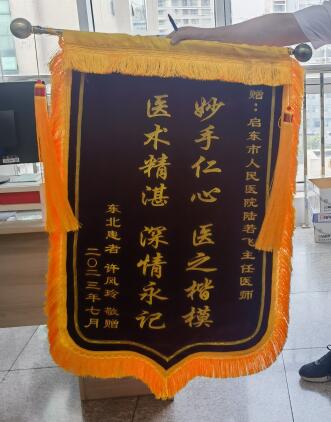 赠：启东市人民医院陆若飞主任医师
妙手仁心 医之楷模
医术精湛 深情永记
东北患者 许凤玲 敬赠
二〇二三年七月